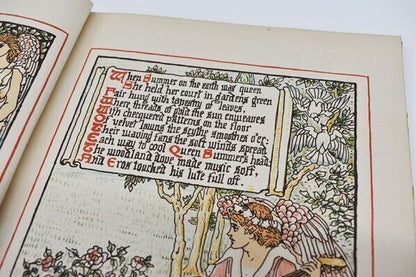 When Summer on the earth was queen
She held her court in gardens green
Fair hung with tapestry of leaves,
Where threads of gold the sun enweaves
With chequered patterns on the floor
Of velvet lawns the scythe smoothes o'er:
Their waving fans the soft winds spread
Each way to cool Queen Summer's head:
The woodland dove made music soft,
And Eros touched his lute full oft.